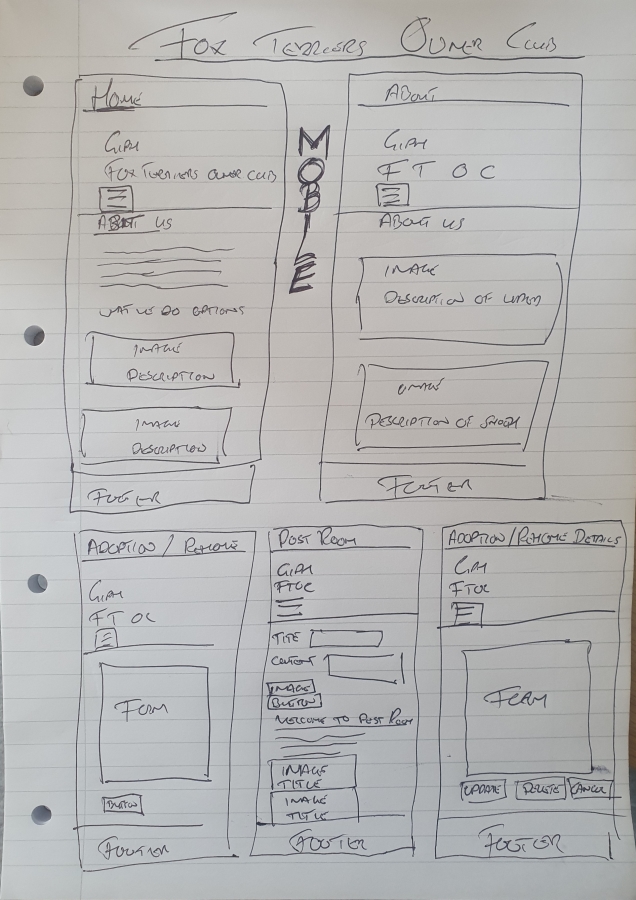 FOX TERRIERS OWNER CLUB
HOME
GIPH
FOX TERRIERS OWNER CLUB
ABOUT US
WHAT WE DO OPTIONS
IMAGE
DESCRIPTION
IMAGE
DESCRIPTION
FOOTER
MOBILE
ABOUT
GIPH
F T O C
ABOUT US
IMAGE
DESCRIPTION OF
IMAGE
DESCRIPTION OF
FOOTER
ADOPTION / REHOME
GIPH
F T OC
FORM
BUTTON
FOOTER
POST ROOM
GIPH
FTOC
TITLE
CONTENT
IMAGE
BUTTON
WELCOME TO POST ROOM
IMAGE
TITLE
IMAGE
TITLE
FOOTER
ADOPTION/REHOME DETAILS
GIPH
FTOC
FORM
UPDATE DELETE CANCEL
FOOTER